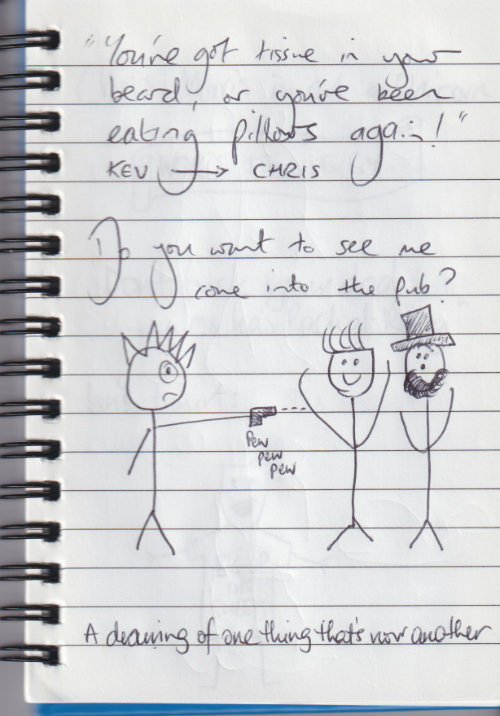 "You've got tissue in your
beard, or you've been
eating pillows again!"
KEV → CHRIS
Do you want to see me
come into the pub?
Pew
pew
pew
A drawing of one thing that's now another